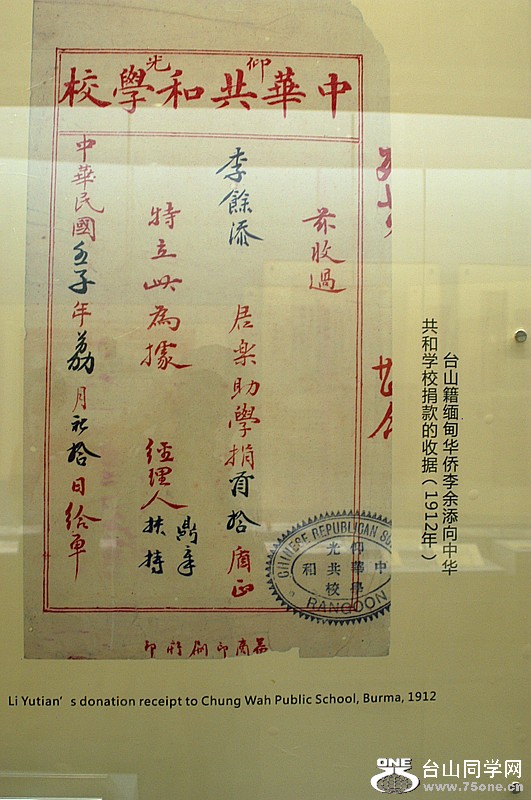 仰光
中華共和學校
茲收過
李餘添 居樂助學捐 拾盾正
特立此為據
經理人 扶持
中華民國壬子年荔月初拾日給單
CHINESE REPUBLICAN
仰光
中華共和
學校
RANGOON
台山籍缅甸华侨李余添向中华
共和学校捐款的收据（1912年）
Li Yutian's donation receipt to Chung Wah Public School, Burma, 1912
ONE 台山同学网
www.75one.cn